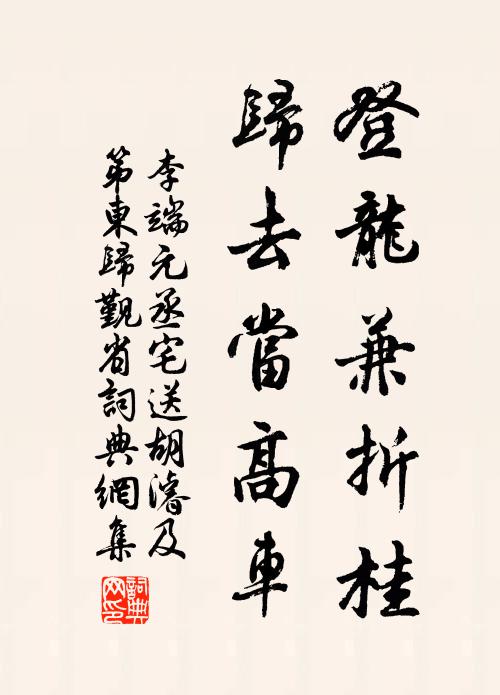 登龍兼折桂
歸去當高車
李端元丞宅送胡濬及
第東歸覲省詞典網集
詞典
网印